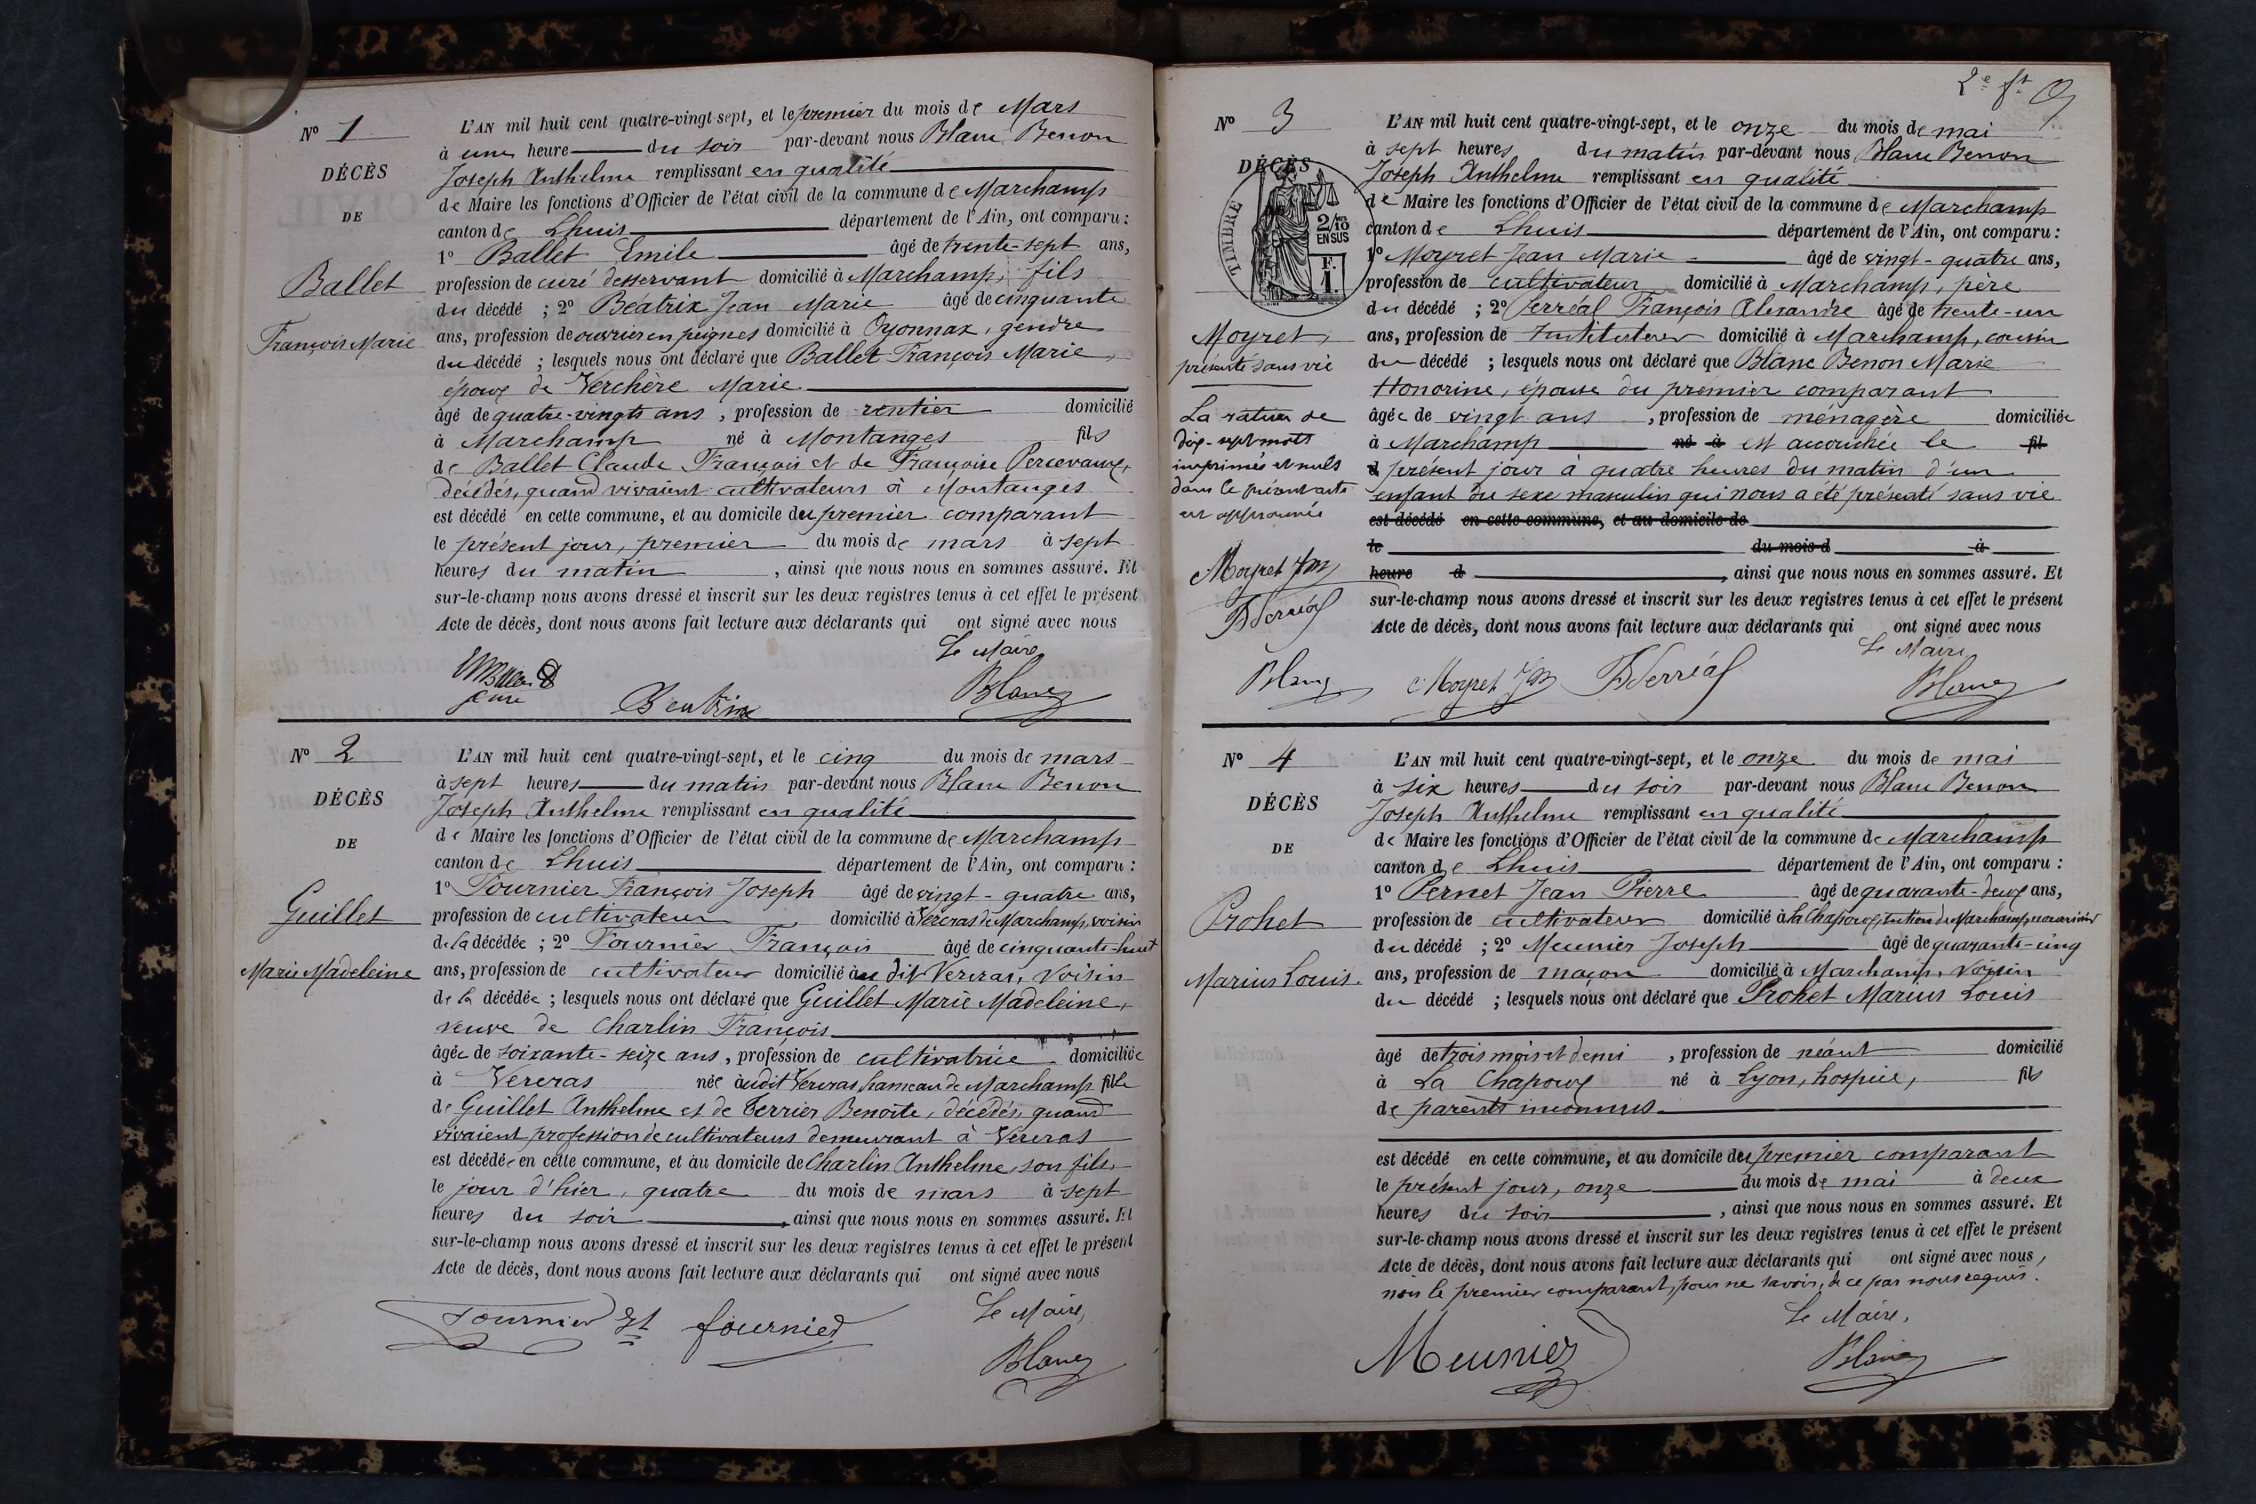 N° 1
DÉCÈS
DE
Ballet
François Marie
L'AN mil huit cent quatre-vingt-sept, et le premier du mois de Mars
à une heure du soir par-devant nous Blanc Benon
Joseph Anthelme remplissant en qualité
de Maire les fonctions d'Officier de l'état civil de la commune de Marchamp
canton de Lhuis département de l'Ain, ont comparu :
1° Ballet Emile âgé de trente-sept ans,
profession de curé desservant domicilié à Marchamp, fils
du décédé ; 2° Beatrix Jean Marie âgé de cinquante
ans, profession de ouvrier en peignes domicilié à Oyonnax, gendre
du décédé ; lesquels nous ont déclaré que Ballet François Marie,
époux de Verchère Marie
âgé de quatre-vingts ans, profession de rentier domicilié
à Marchamp né à Montanges fils
de Ballet Claude François et de Françoise Percevaux,
décédés, quand vivaient cultivateurs à Montanges
est décédé en cette commune, et au domicile du premier comparant
le présent jour, premier du mois de mars à sept
heures du matin, ainsi que nous nous en sommes assuré. Et
sur-le-champ nous avons dressé et inscrit sur les deux registres tenus à cet effet le présent
Acte de décès, dont nous avons fait lecture aux déclarants qui ont signé avec nous
Le Maire
curé
Beatrix
Blanc
N° 2
DÉCÈS
DE
Guillet
Marie Madeleine
L'AN mil huit cent quatre-vingt-sept, et le cinq du mois de mars
à sept heures du matin par-devant nous Blanc Benon
Joseph Anthelme remplissant en qualité
de Maire les fonctions d'Officier de l'état civil de la commune de Marchamp
canton de Lhuis département de l'Ain, ont comparu :
1° Fournier François Joseph âgé de vingt-quatre ans,
profession de cultivateur domicilié à Vercras de Marchamp, voisin
de la décédée ; 2° Fournier François âgé de cinquante-huit
ans, profession de cultivateur domicilié au dit Vercras, voisin
de la décédée ; lesquels nous ont déclaré que Guillet Marie Madeleine,
veuve de Charlin François
âgée de soixante-seize ans, profession de cultivatrice domiciliée
à Vercras née audit Vercras, hameau de Marchamp fille
de Guillet Anthelme et de Terrier Benoite, décédés, quand
vivaient profession de cultivateurs demeurant à Vercras
est décédée en cette commune, et au domicile de Charlin Anthelme, son fils,
le jour d'hier, quatre du mois de mars à sept
heures du soir, ainsi que nous nous en sommes assuré. Et
sur-le-champ nous avons dressé et inscrit sur les deux registres tenus à cet effet le présent
Acte de décès, dont nous avons fait lecture aux déclarants qui ont signé avec nous
Le Maire,
Fournier fournier
Blanc
2e ft
N° 3
DÉCÈS
TIMBRE
2/10
EN SUS
F.
1.
Moyret,
présenté sans vie
La rature de
dix-sept mots
imprimés et nuls
dans le présent acte
est approuvée
Moyret Jm
Ferréal
Blanc
L'AN mil huit cent quatre-vingt-sept, et le onze du mois de mai
à sept heures du matin par-devant nous Blanc Benon
Joseph Anthelme remplissant en qualité
de Maire les fonctions d'Officier de l'état civil de la commune de Marchamp
canton de Lhuis département de l'Ain, ont comparu :
1° Moyret Jean Marie âgé de vingt-quatre ans,
profession de cultivateur domicilié à Marchamp, père
du décédé ; 2° Ferréal François Alexandre âgé de trente-un
ans, profession de Instituteur domicilié à Marchamp, cousin
du décédé ; lesquels nous ont déclaré que Blanc Benon Marie
Honorine, épouse du premier comparant
âgée de vingt ans, profession de ménagère domiciliée
à Marchamp né à est accouchée le fil
d présent jour à quatre heures du matin d'un
enfant du sexe masculin qui nous a été présenté sans vie
est décédé en cette commune, et au domicile de
le du mois d à
heure d, ainsi que nous nous en sommes assuré. Et
sur-le-champ nous avons dressé et inscrit sur les deux registres tenus à cet effet le présent
Acte de décès, dont nous avons fait lecture aux déclarants qui ont signé avec nous
Le Maire
Moyret Jm Ferréal
Blanc
N° 4
DÉCÈS
DE
Prohet
Marius Louis.
L'AN mil huit cent quatre-vingt-sept, et le onze du mois de mai
à six heures du soir par-devant nous Blanc Benon
Joseph Anthelme remplissant en qualité
de Maire les fonctions d'Officier de l'état civil de la commune de Marchamp
canton de Lhuis département de l'Ain, ont comparu :
1° Pernet Jean Pierre âgé de quarante-deux ans,
profession de cultivateur domicilié à La Chapoux, section de Marchamp, nourricier
du décédé ; 2° Meunier Joseph âgé de quarante-cinq
ans, profession de maçon domicilié à Marchamp, voisin
du décédé ; lesquels nous ont déclaré que Prohet Marius Louis
âgé de trois mois et demi, profession de néant domicilié
à La Chapoux né à Lyon, hospice, fils
de parents inconnus.
est décédé en cette commune, et au domicile du premier comparant
le présent jour, onze du mois de mai à deux
heures du soir, ainsi que nous nous en sommes assuré. Et
sur-le-champ nous avons dressé et inscrit sur les deux registres tenus à cet effet le présent
Acte de décès, dont nous avons fait lecture aux déclarants qui ont signé avec nous,
non le premier comparant, pour ne savoir, de ce par nous requis.
Le Maire,
Meunier
Blanc